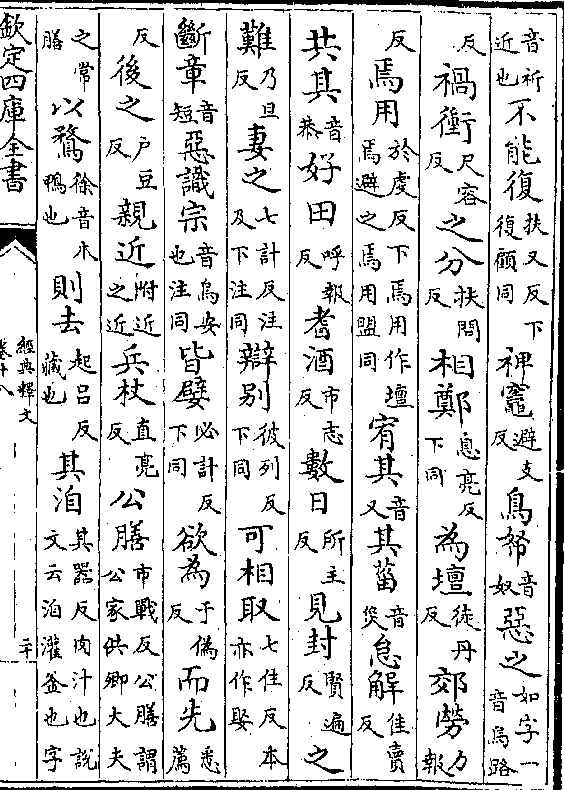 音祈近也不能復扶又反下復顧同裨竈避支反鳥帑音奴惡之如字一音烏路
反禍衝尺容反之分扶問反相鄭息亮反下同為壇徒丹反郊勞力報
反焉用於虔反下焉用作壇焉避之焉用盟同宥其音又其菑音災怠解佳賣反
共其音恭好田呼報反耆酒市志反數日所主反見封賢遍反之
難乃旦反妻之七計反注及下注同辯别彼列反下同可相取七住反本亦作娶
斷章音短惡識宗音烏安也注同皆嬖必計反下同欲為于偽反而先悉薦
反後之户豆反親近附近之近兵杖直亮反公膳市戰反公膳謂公家供卿大夫
之常膳以鶩徐音木鴨也則去起吕反藏也其洎其器反肉汁也說文云洎灌釜也字
欽定四庫全書
經典釋文
卷十八
二十